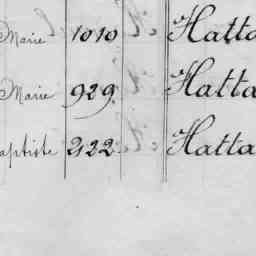 Marie 1010 d. Hatta
Marie 929. d. Hatta
aptiste 2122. d. Hatta